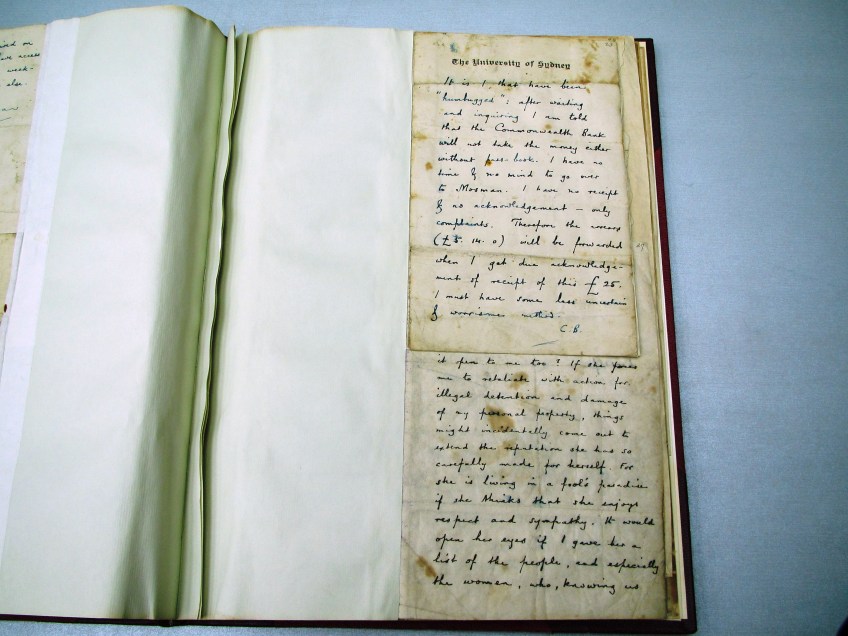 ised on
ave access
week-
also.
The University of Sydney
It is I that have been
"humbugged": after waiting
and inquiring I am told
that the Commonwealth Bank
will not take the money either
without pass-book. I have no
time & no mind to go over
to Mosman. I have no receipt
& no acknowledgement – only
complaints. Therefore the arrears
(£5. 14. 0) will be forwarded
when I get due acknowledge-
ment of receipt of this £25.
I must have some less uncertain
& worrisome method.
C.B.
it open to me too? If she forces
me to retaliate with action for
illegal detention and damage
of my personal property, things
might incidentally come out to
extend the reputation she has so
carefully made for herself. For
she is living in a fool's paradise
if she thinks that she enjoys
respect and sympathy. It would
open her eyes if I gave her a
list of the people, and especially
the women, who, knowing us